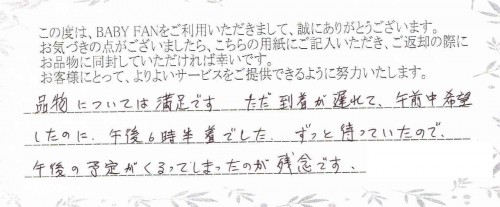 この度は、BABY FANをご利用いただきまして、誠にありがとうございます。
お気づきの点がございましたら、こちらの用紙にご記入いただき、ご返却の際に
お品物に同封していただければ幸いです。
お客様にとって、よりよいサービスをご提供できるように努力いたします。
品物については満足です ただ到着が遅れて、午前中希望
したのに、午後6時半着でした。ずっと待っていたので、
午後の予定がくるってしまったのが残念です、